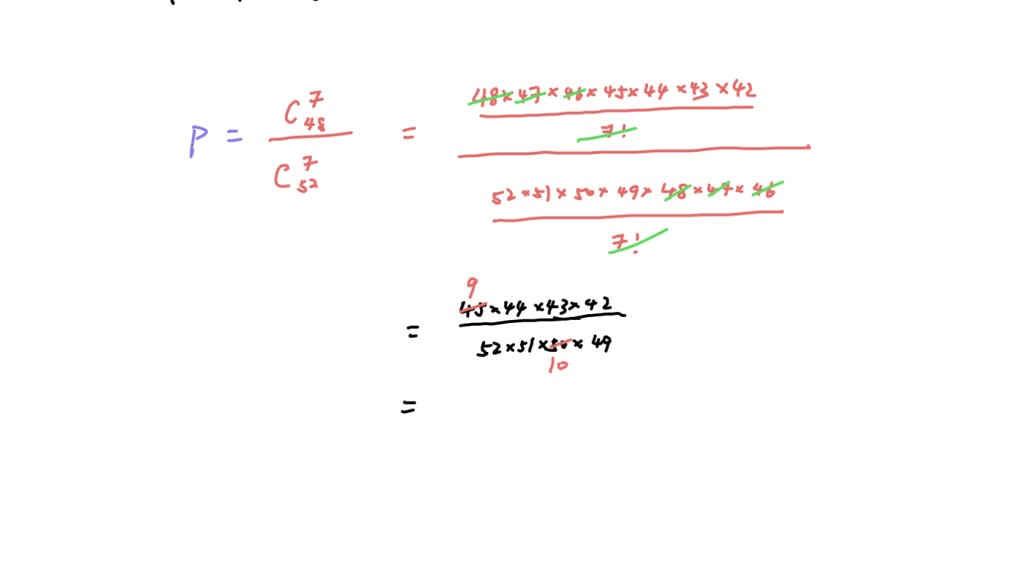 P = C_{48}^{7} / C_{52}^{7} = (48 × 47 × 46 × 45 × 44 × 43 × 42 / 7!) / (52 × 51 × 50 × 49 × 48 × 47 × 46 / 7!)
9
= 45 × 44 × 43 × 42 / 52 × 51 × 50 × 49
10
=